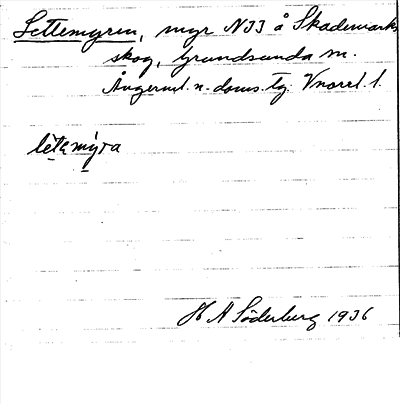 Lettemyren, myr N33 å Skademarks
skog, Grundsunda sn.
Ångerml. n. doms. tg. Vnorrl. l.
lètemýra
H A Söderberg 1936